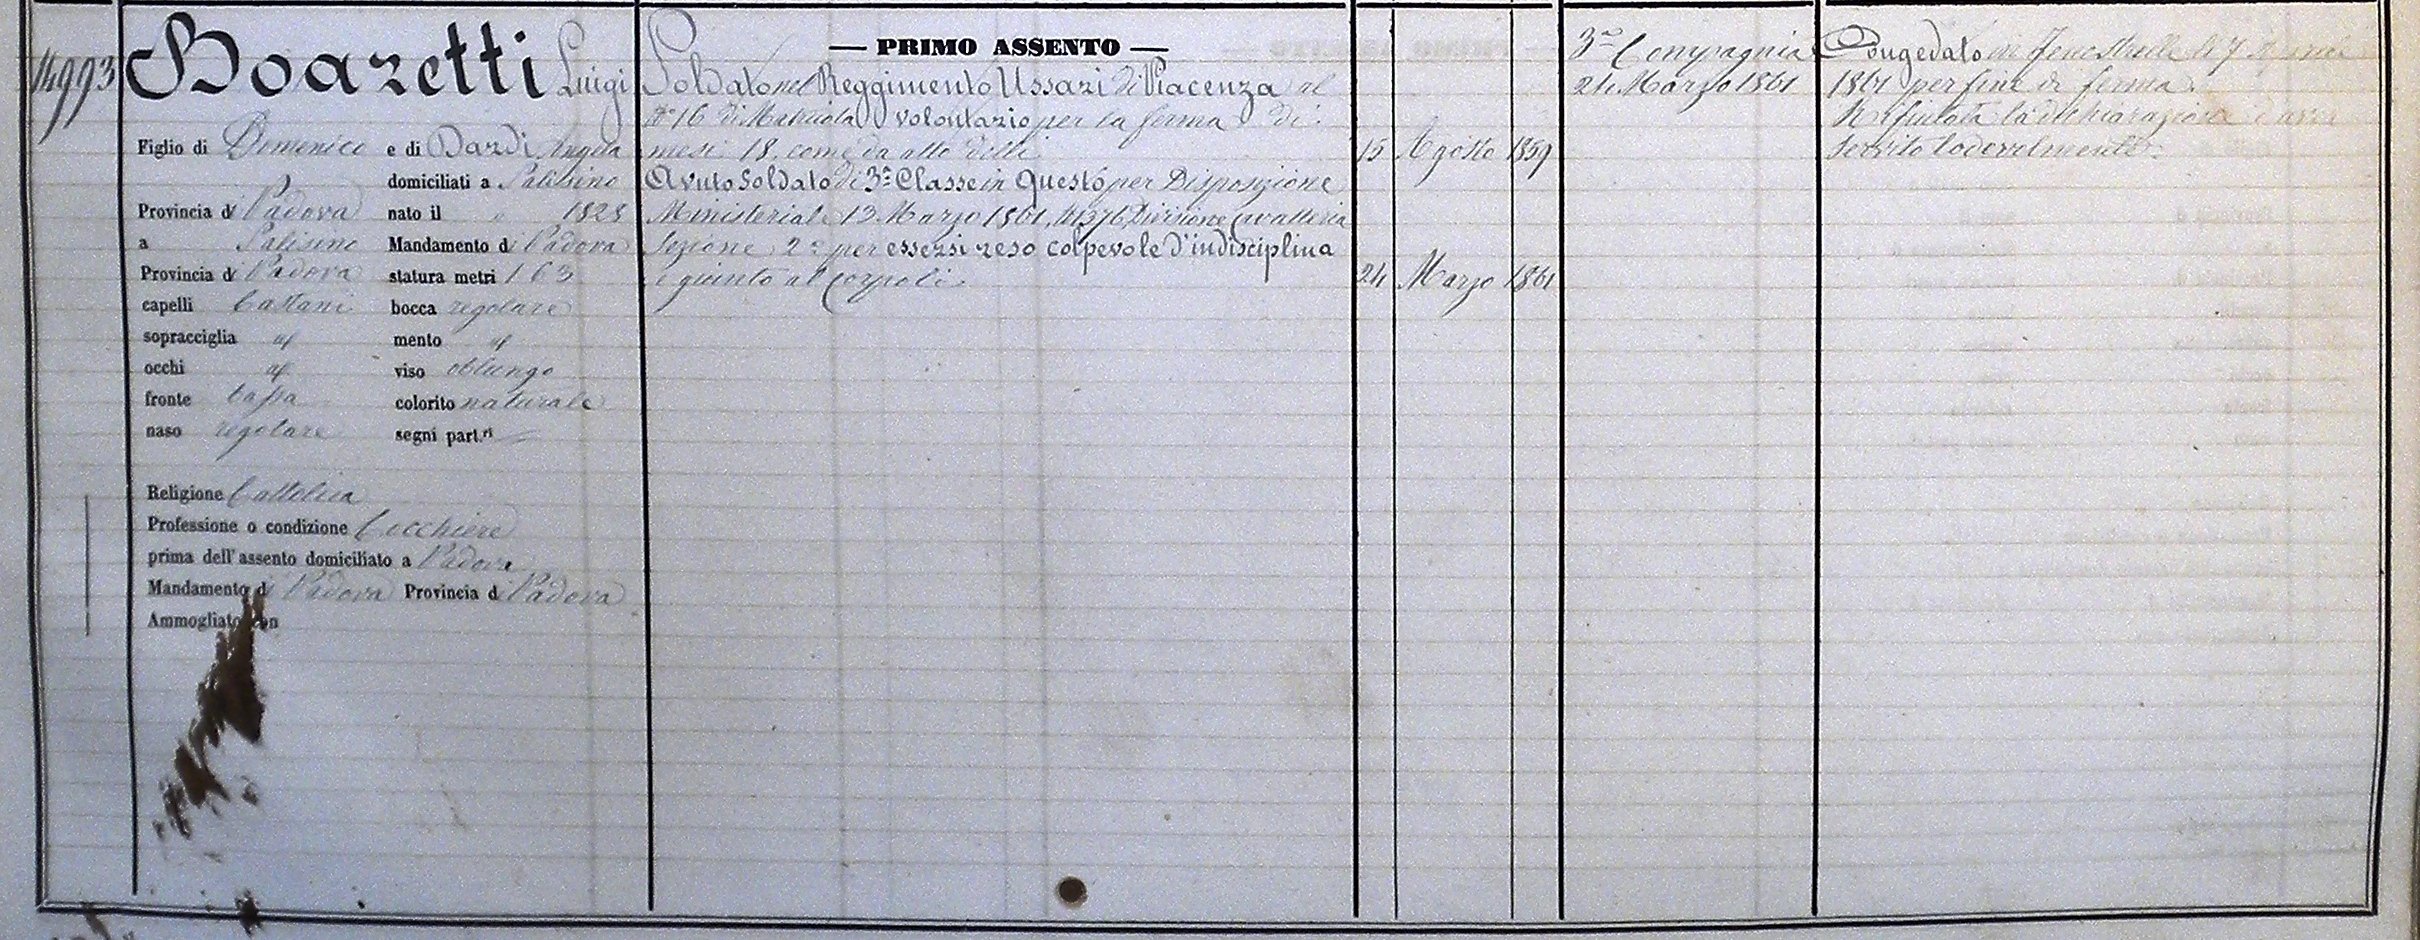 14993
Boazetti Luigi
Figlio di Domenico e di Dardi Angela
domiciliati a Palisino
Provincia di Padova nato il " 1828
a Palisino Mandamento di Padova
Provincia di Padova statura metri 1 63
capelli Castani bocca regolare
sopracciglia id mento id
occhi id viso oblungo
fronte bassa colorito naturale
naso regolare segni part.ri
Religione Cattolica
Professione o condizione Cocchiere
prima dell'assento domiciliato a Padova
Mandamento di Padova Provincia di Padova
Ammogliato con
— PRIMO ASSENTO —
Soldato nel Reggimento Ussari di Piacenza al
N° 16 di Matricola volontario per la ferma di
mesi 18 come da atto delli 15 Agosto 1859
Avuto Soldato di 3ª Classe in questo per Disposizione
Ministeriale 13 Marzo 1861 N 1376 Divisione Cavalleria
Sezione 2ª per essersi reso colpevole d'indisciplina
e giunto al Corpo li 24 Marzo 1861
3ª Compagnia
24 Marzo 1861
Congedato in Fenestrelle li 7
1861 per fine di ferma
Rifiutata la dichiarazione d'aver
servito lodevolmente